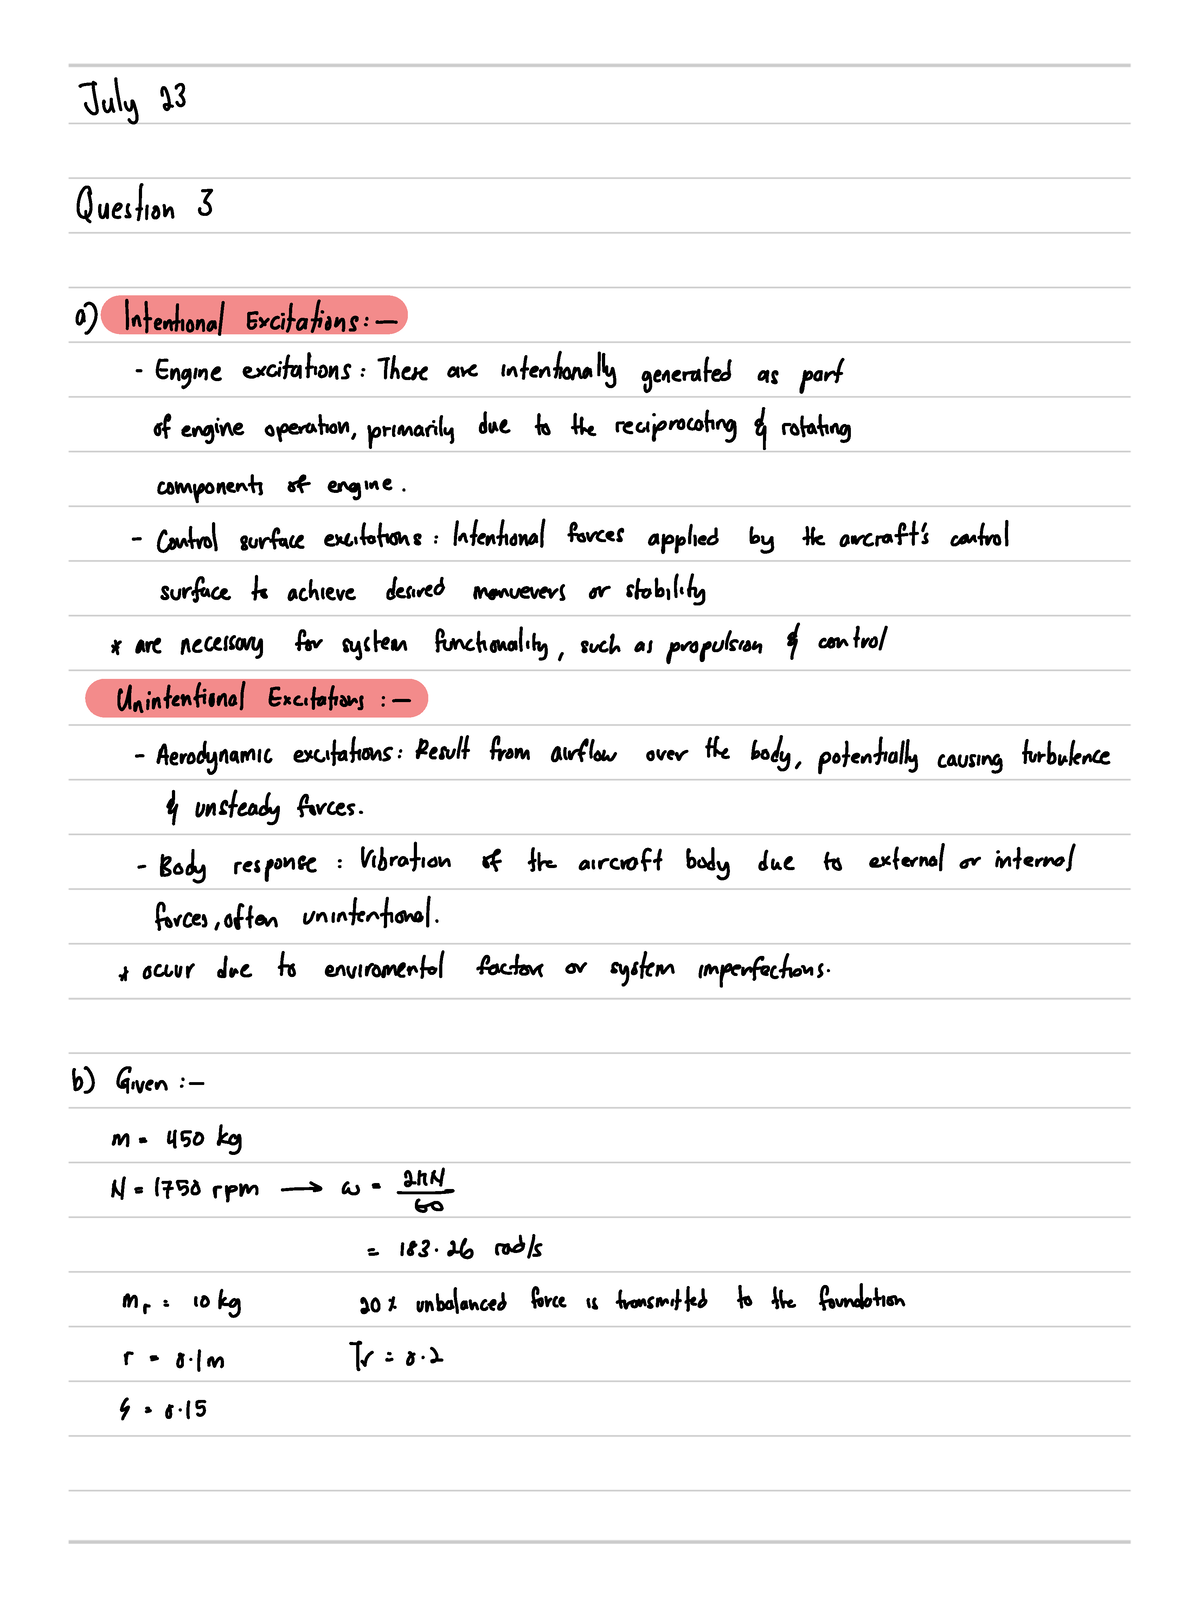 July 23
Question 3
a) Intentional Excitations :-
- Engine excitations : These are intentionally generated as part
of engine operation, primarily due to the reciprocating & rotating
components of engine.
- Control surface excitations : Intentional forces applied by the aircraft's control
surface to achieve desired manuevers or stability
* are necessary for system functionality, such as propulsion & control
Unintentional Excitations :-
- Aerodynamic excitations : Result from airflow over the body, potentially causing turbulence
& unsteady forces.
- Body response : Vibration of the aircraft body due to external or internal
forces, often unintentional.
* occur due to enviromental factors or system imperfections.
b) Given :-
m = 450 kg
N = 1750 rpm → ω = 2πN/60
= 183.26 rad/s
mr = 10 kg 20% unbalanced force is transmitted to the foundation
r = 0.1m Tr = 0.2
ζ = 0.15